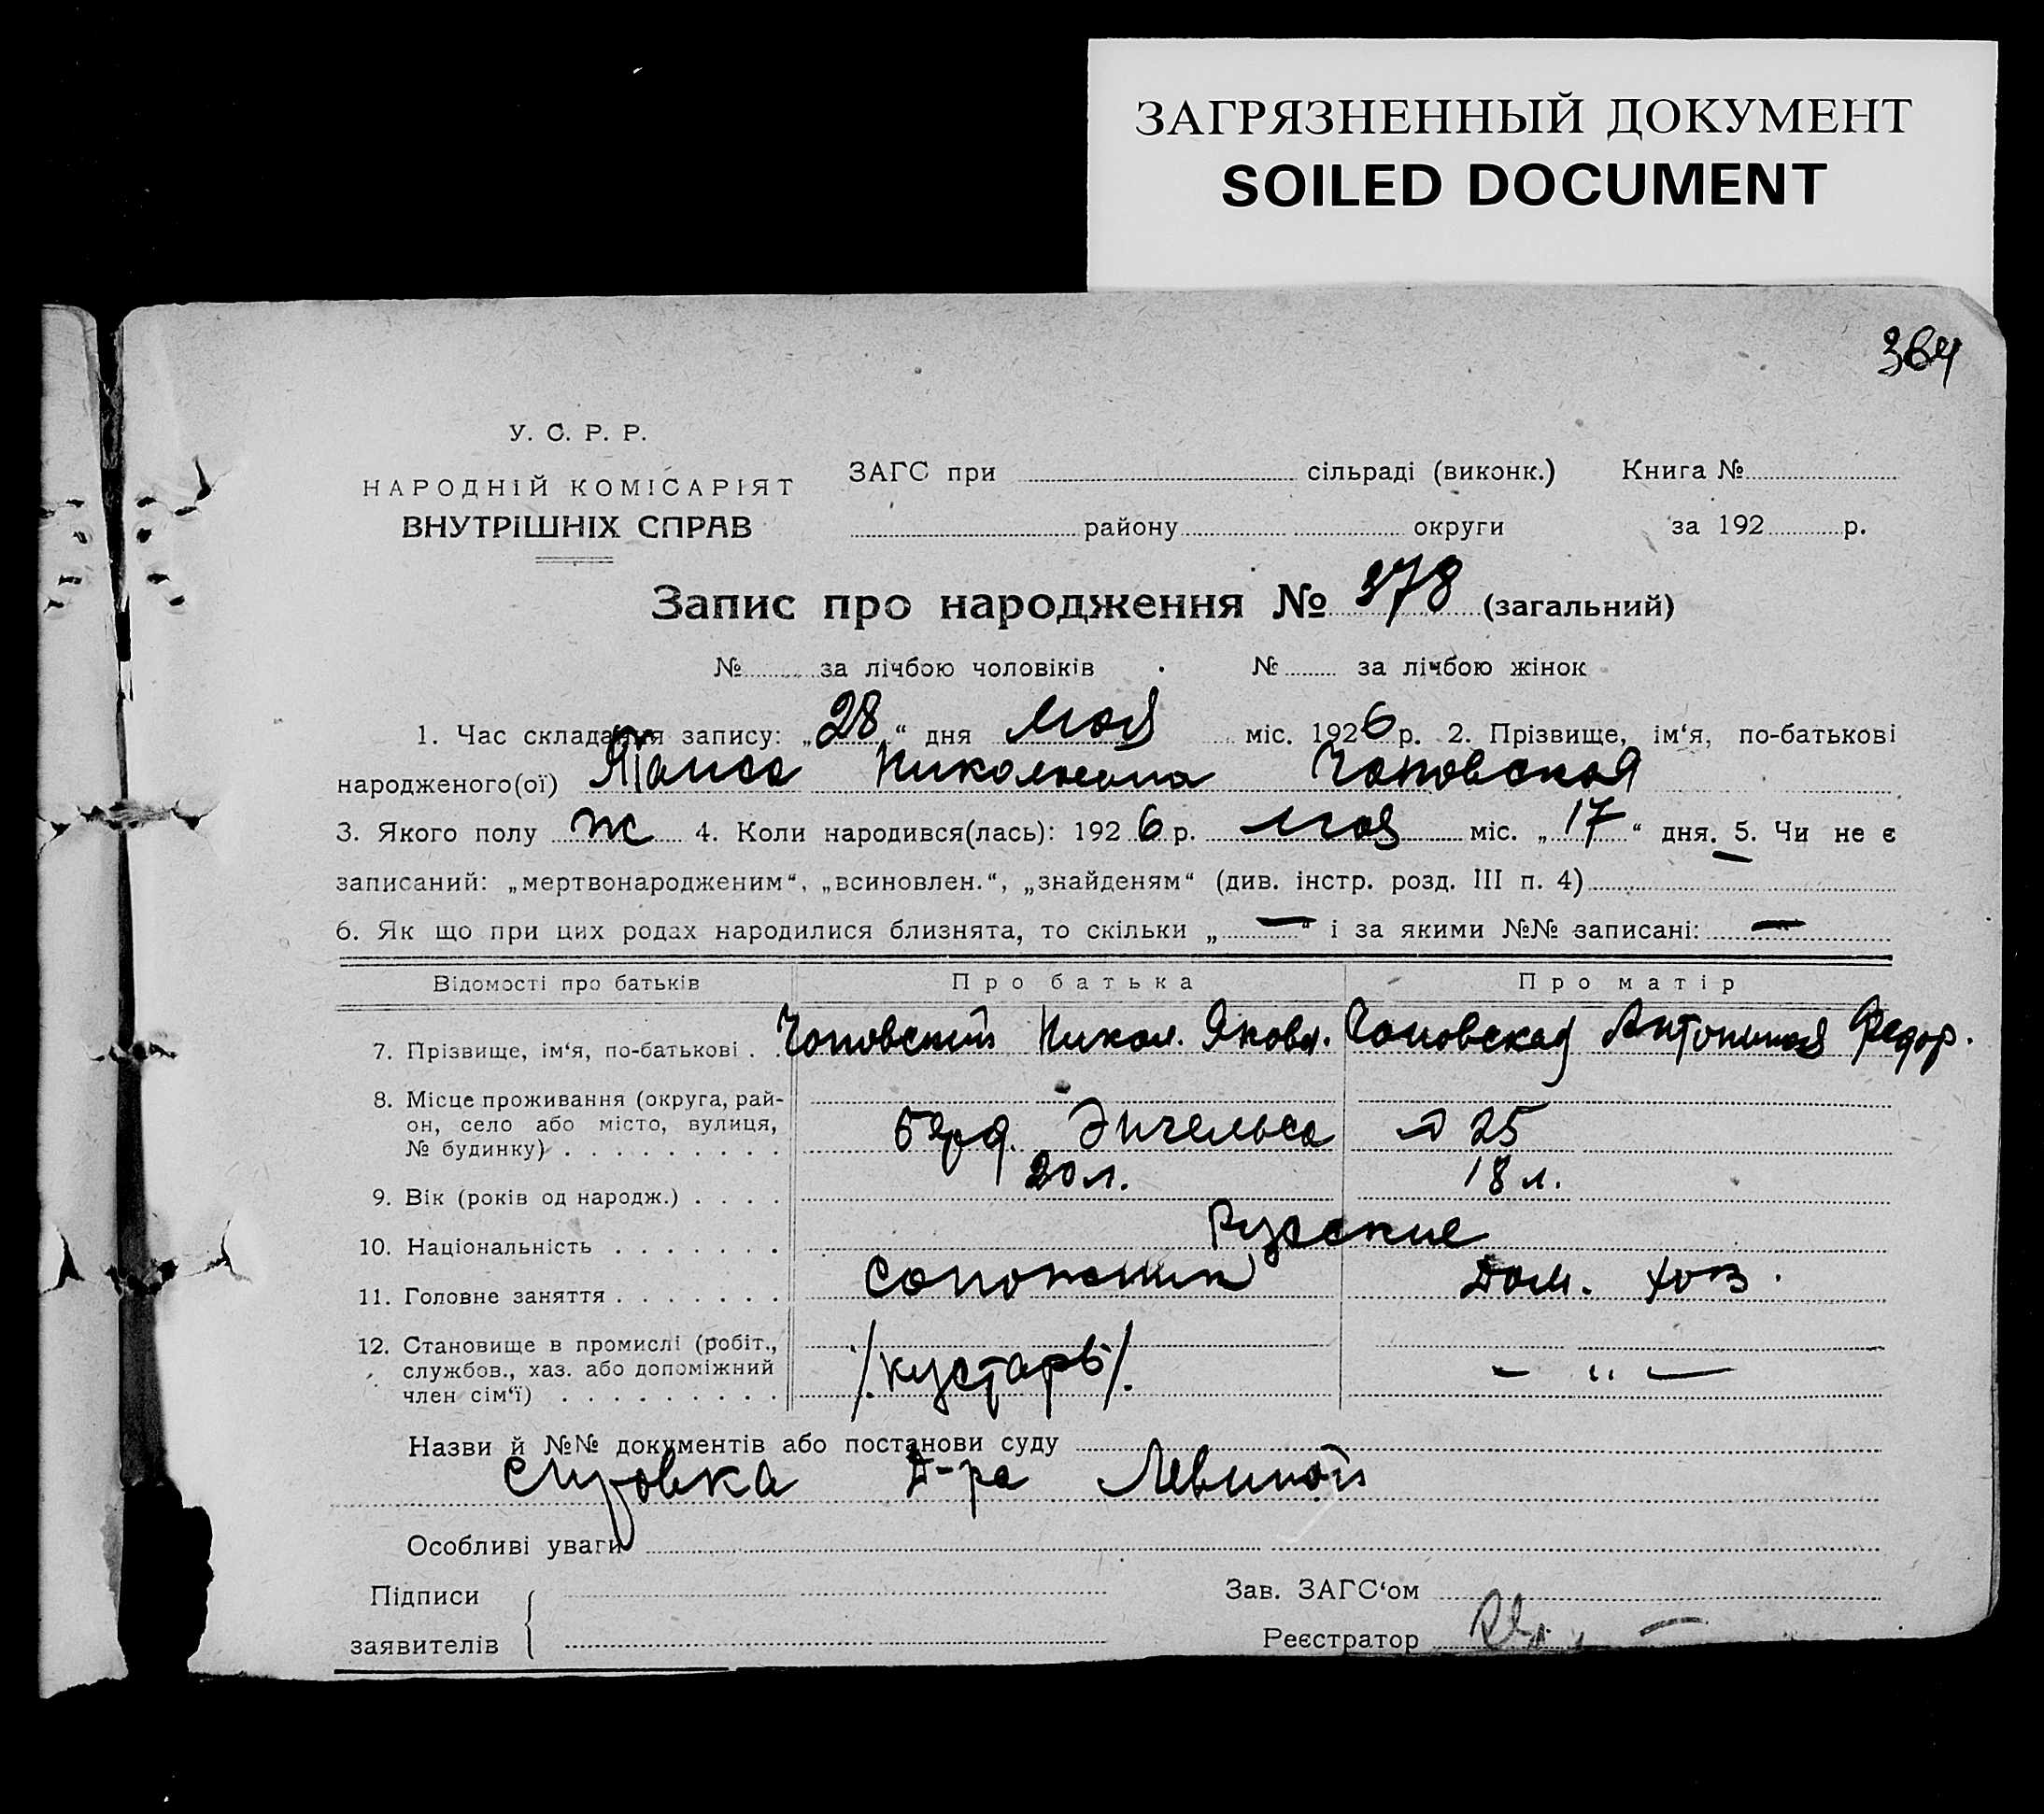 ЗАГРЯЗНЕННЫЙ ДОКУМЕНТ
SOILED DOCUMENT
364
У. С. Р. Р.
НАРОДНІЙ КОМІСАРІЯТ
ВНУТРІШНІХ СПРАВ
ЗАГС при сільраді (виконк.) Книга №
району округи за 192 р.
Запис про народження № 378 (загальний)
№ за лічбою чоловіків № за лічбою жінок
1. Час складання запису: „28“ дня мая міс. 1926 р. 2. Прізвище, ім‘я, по-батькові
народженого(ої) Таиса Николаевна Чоповская
3. Якого полу ж 4. Коли народився(лась): 1926 р. мая міс. „17“ дня. 5. Чи не є
записаний: „мертвонародженим“, „всиновлен.“, „знайденям“ (див. інстр. розд. III п. 4) —
6. Як що при цих родах народилися близнята, то скільки „—“ і за якими №№ записані: —
Відомості про батьків Про батька Про матір
7. Прізвище, ім‘я, по-батькові . . Чоповский Никол. Яковл. Чоповская Антонина Федор.
8. Місце проживання (округа, рай-
он, село або місто, вулиця,
№ будинку) . . . . . . . . . Берд. Энгельса 25
9. Вік (років од народж.) . . . . 20 л. 18 л.
10. Національність . . . . . . . Русские
11. Головне заняття . . . . . . . Сапожник Дом. хоз.
12. Становище в промислі (робіт.,
службов., хаз. або допоміжний
член сім‘ї) . . . . . . . . . /кустарь/. — „ —
Назви й №№ документів або постанови суду
справка Д-ра Левиной
Особливі уваги
Підписи
заявителів
Зав. ЗАГС‘ом
Реєстратор